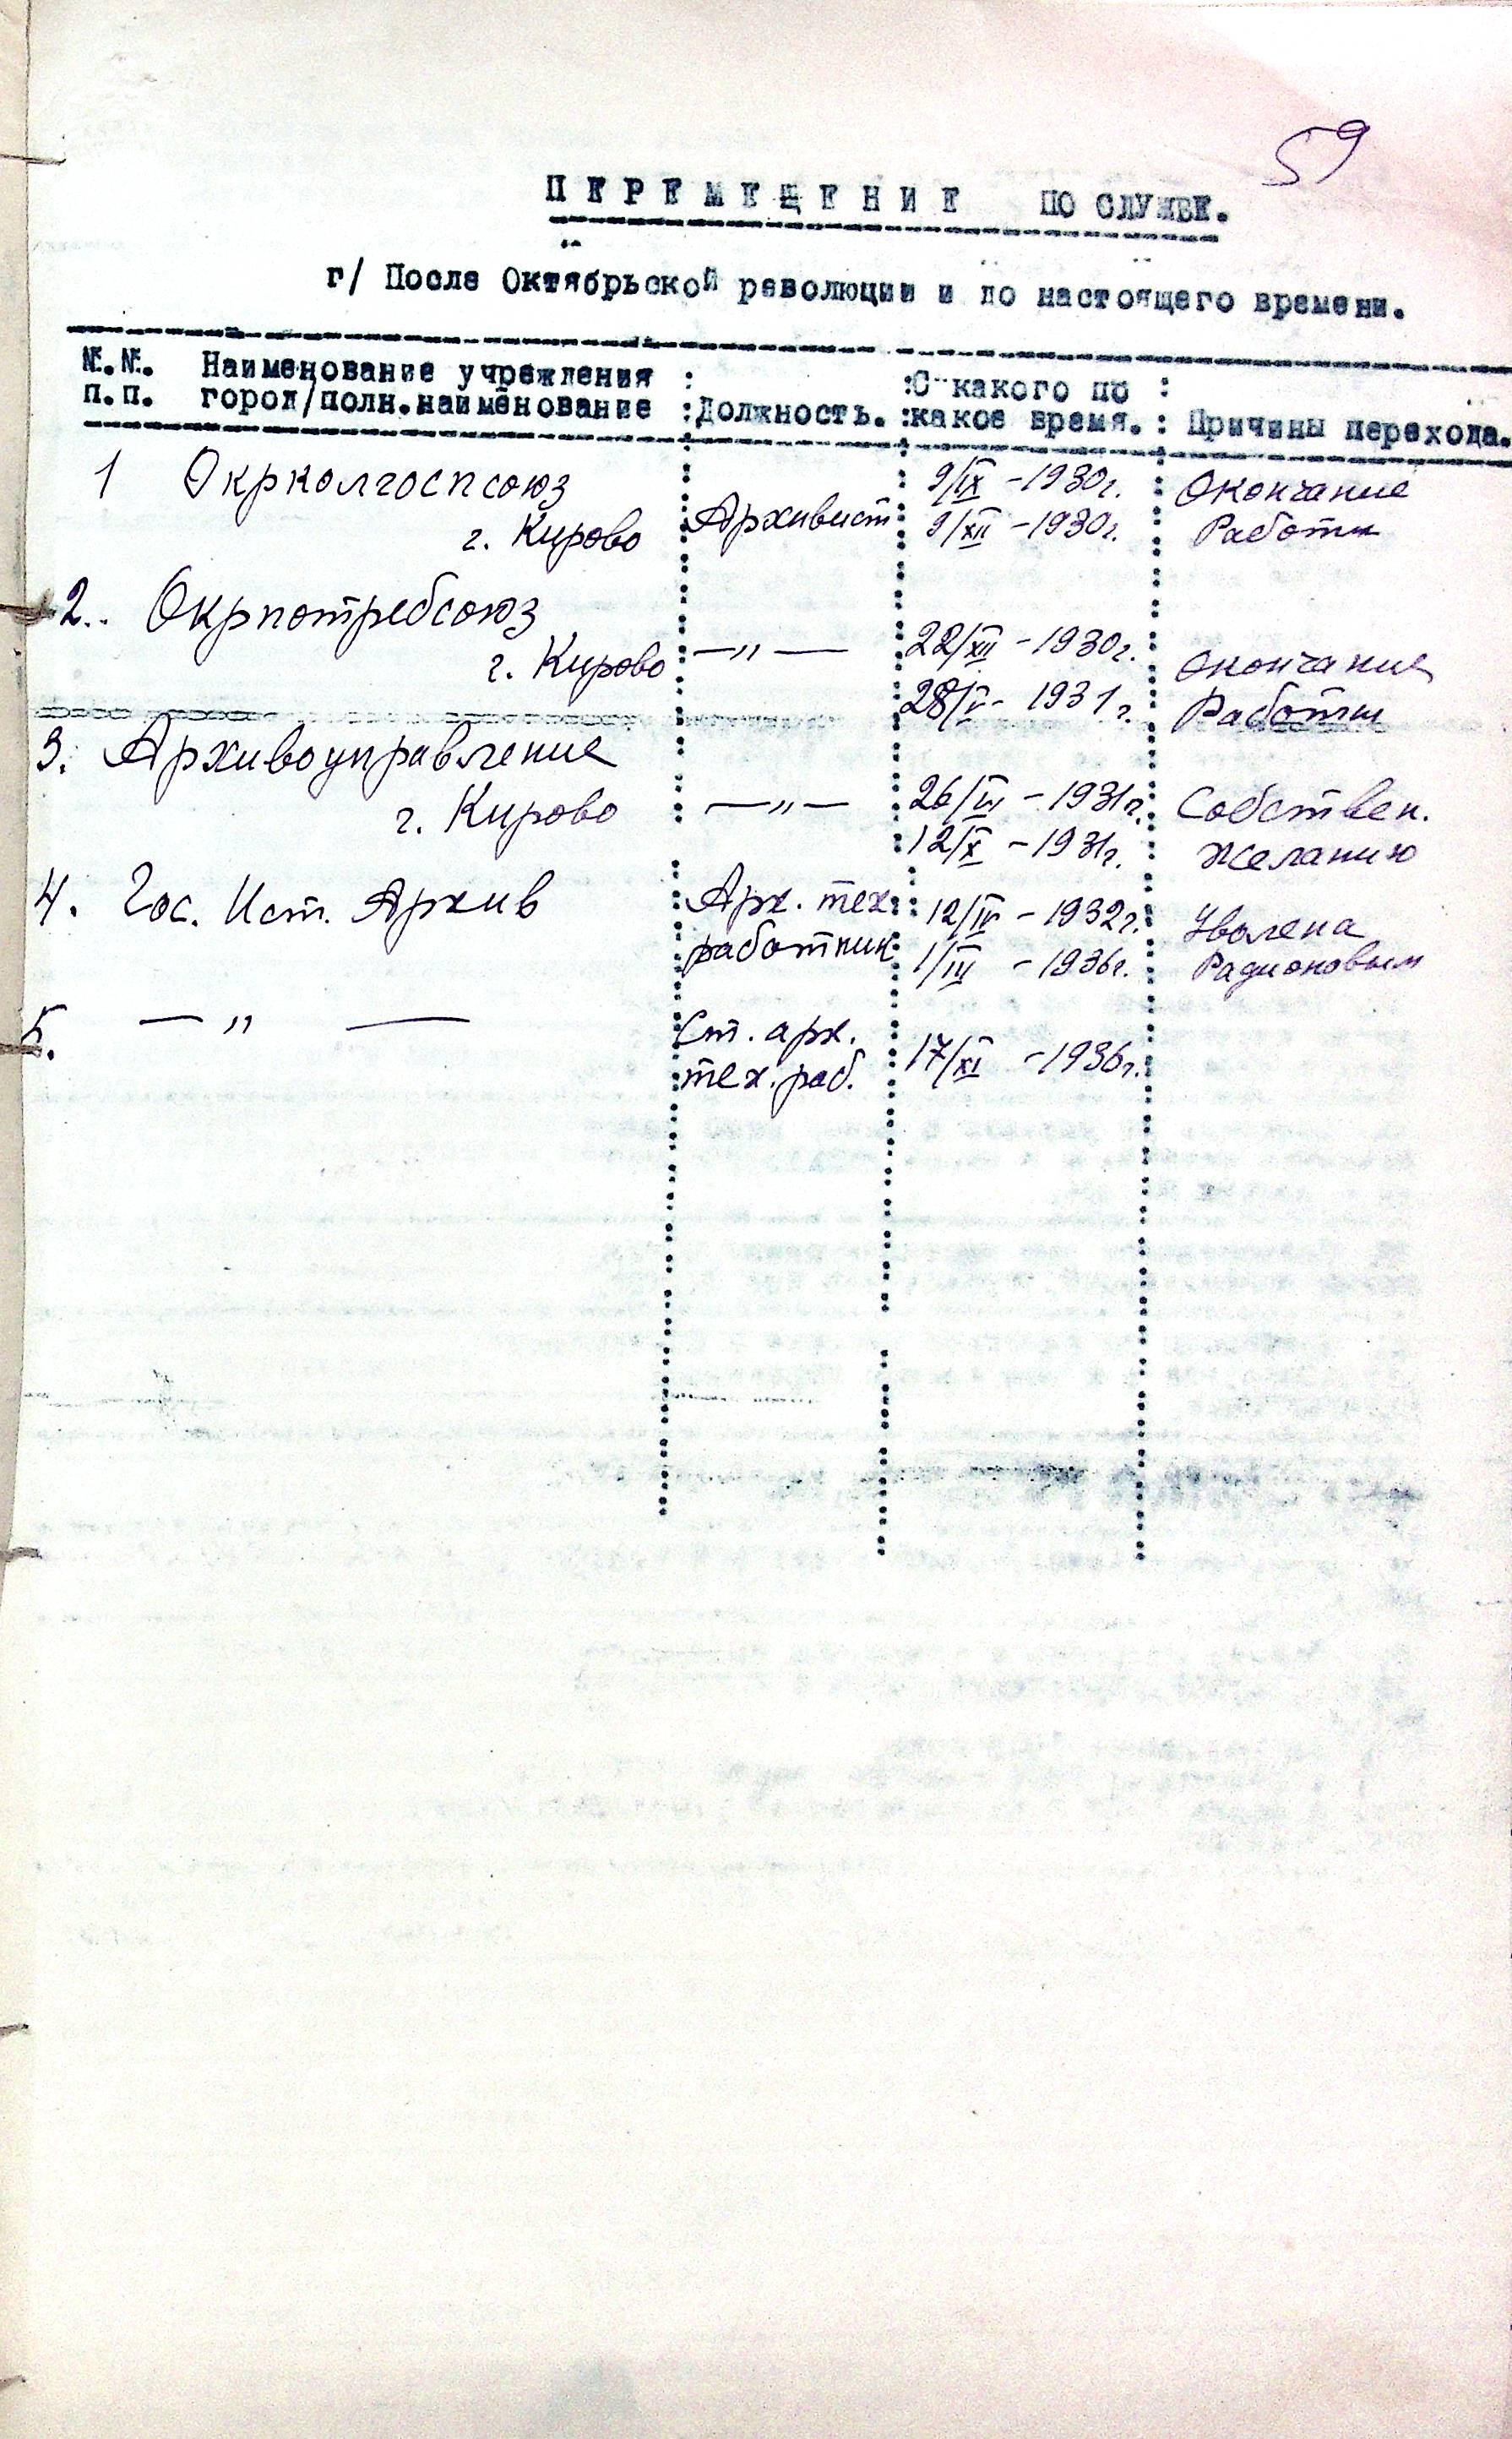 59
ПЕРЕМЕЩЕНИЕ ПО СЛУЖБЕ.
г/ После Октябрьской революции и до настоящего времени.
№.№. Наименование учреждения : :С какого по :
п.п. город/полн.наименование :Должность. :какое время. : Причины перехода.
1 Окрколгоспсоюз 9/IX - 1930г. Окончание
г. Кирово Архивист 9/XII - 1930г. Работы
2.. Окрпотребсоюз
г. Кирово —„— 22/XII - 1930г. Окончание
28/V - 1931г. Работы
3. Архивоуправление
г. Кирово —„— 26/VI - 1931г. Собствен.
12/X - 1931г. желанию
4. Гос. Ист. Архив Арх. тех. 12/IV - 1932г. Уволена
работник 1/III - 1936г. Радионовым
5. —„— Ст. арх.
тех. раб. 17/XI - 1936г.